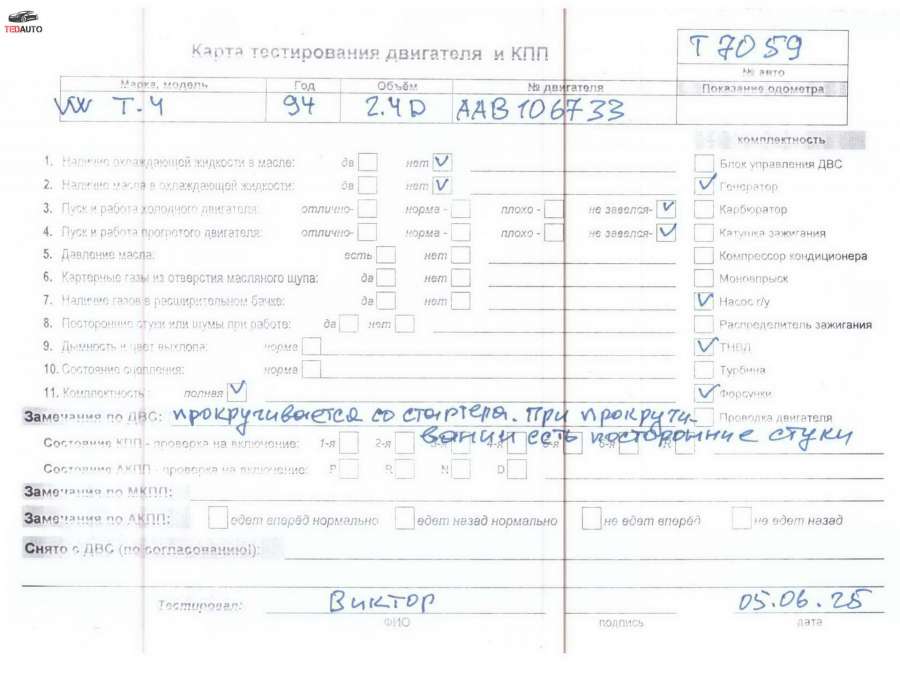 TEDAUTO
Карта тестирования двигателя и КПП
Т 7059
№ авто
Марка, модель Год Объём № двигателя Показание одометра
VW T-4 94 2.4D AAB106733
комплектность
1. Наличие охлаждающей жидкости в масле: да нет ✓ Блок управления ДВС
2. Наличие масла в охлаждающей жидкости: да нет ✓ ✓ Генератор
3. Пуск и работа холодного двигателя: отлично- норма - плохо - не завелся- ✓ Карбюратор
4. Пуск и работа прогретого двигателя: отлично- норма - плохо - не завелся- ✓ Катушка зажигания
5. Давление масла: есть нет Компрессор кондиционера
6. Картерные газы из отверстия масляного щупа: да нет Моновпрыск
7. Наличие газов в расширительном бачке: да нет ✓ Насос г/у
8. Посторонние стуки или шумы при работе: да нет Распределитель зажигания
9. Дымность и цвет выхлопа: норма ✓ ТНВД
10. Состояние сцепления: норма Турбина
11. Комплектность: полная ✓ ✓ Форсунки
Замечания по ДВС: прокручивается со стартера. При прокручи- Проводка двигателя
вании есть посторонние стуки
Состояние КПП - проверка на включение: 1-я 2-я 3-я 4-я 5-я 6-я R-я
Состояние АКПП - проверка на включение: P R N D
Замечания по МКПП:
Замечания по АКПП: едет вперёд нормально едет назад нормально не едет вперёд не едет назад
Снято с ДВС (по согласованию!):
Тестировал: Виктор 05.06.25
ФИО подпись дата